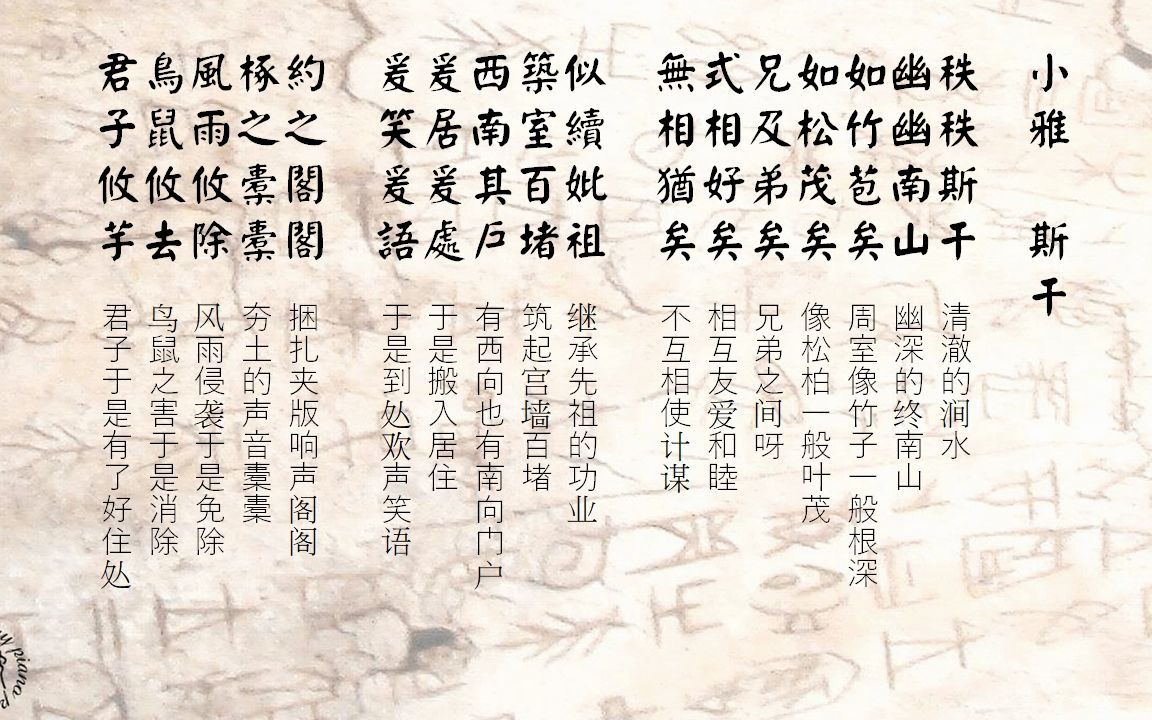 小雅 斯干
秩秩斯干
清澈的涧水
幽幽南山
幽深的终南山
如竹苞矣
周室像竹子一般根深
如松茂矣
像松柏一般叶茂
兄及弟矣
兄弟之间呀
式相好矣
相互友爱和睦
無相猶矣
不互相使计谋
似續妣祖
继承先祖的功业
築室百堵
筑起宫墙百堵
西南其戶
有西向也有南向门户
爰居爰處
于是搬入居住
爰笑爰語
于是到处欢声笑语
約之閣閣
捆扎夹版响声阁阁
椓之橐橐
夯土的声音橐橐
風雨攸除
风雨侵袭于是免除
鳥鼠攸去
鸟鼠之害于是消除
君子攸芋
君子于是有了好住处
piano